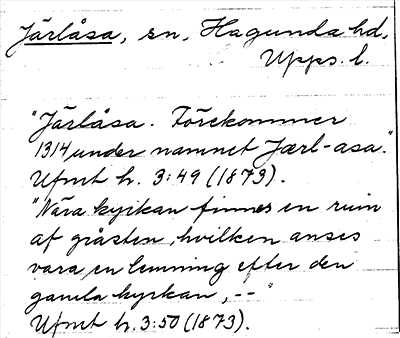 Järlåsa, sn, Hagunda hd,
Upps. l.
"Järlåsa. Förekommer
1314 under namnet Jærl-asa."
Ufmt h. 3:49 (1873).
"Nära kyrkan finnes en ruin
af gråsten, hvilken anses
vara en lemning efter den
gamla kyrkan, -- "
Ufmt h. 3:50 (1873).